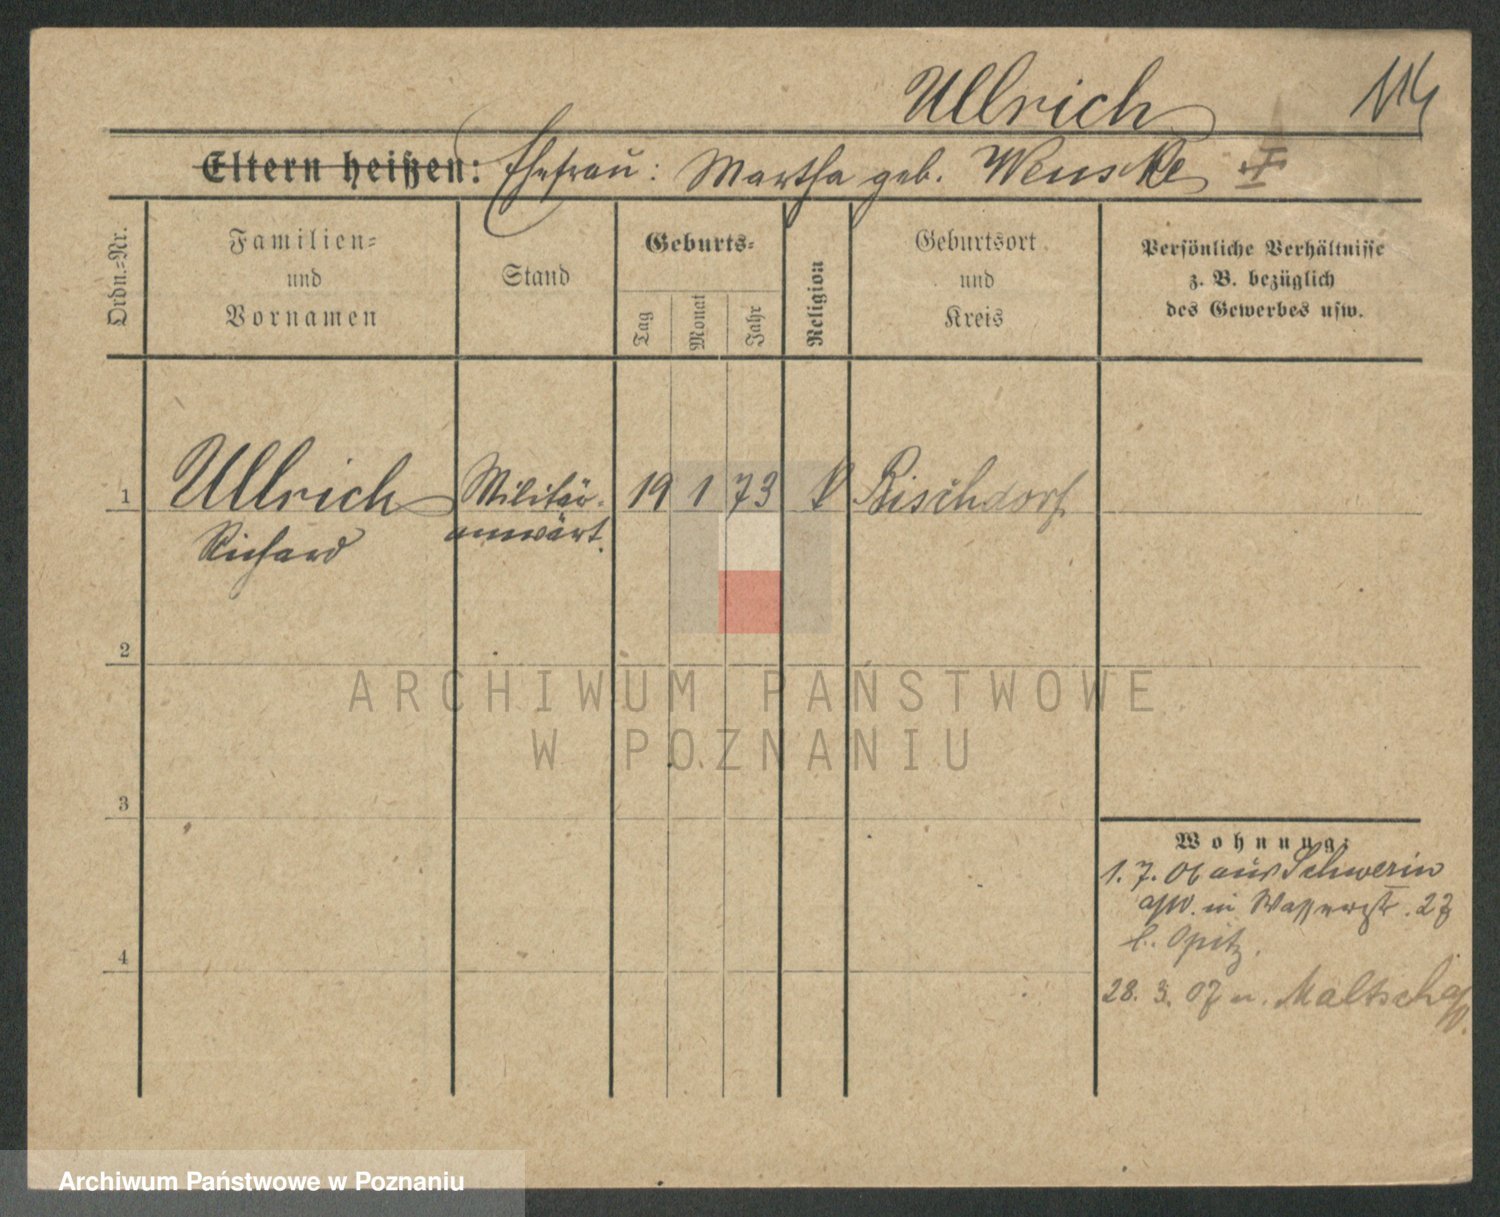 Ullrich 114
Eltern heißen: Ehefrau: Martha geb. Wenske I
Ordn.=Nr.
Familien=
und
Vornamen
Stand
Geburts=
Tag
Monat
Jahr
Religion
Geburtsort
und
Kreis
Persönliche Verhältnisse
z. B. bezüglich
des Gewerbes usw.
1 Ullrich Militär- 19 1 73 Bischdorf
Richard anwärt.
2
3
4
Wohnung:
1. 7. 06 aus Schwerin
in Wasserstr. 27
b. Opitz.
28. 3. 07 n. Maltsch
ARCHIWUM PAŃSTWOWE
W POZNANIU
Archiwum Państwowe w Poznaniu